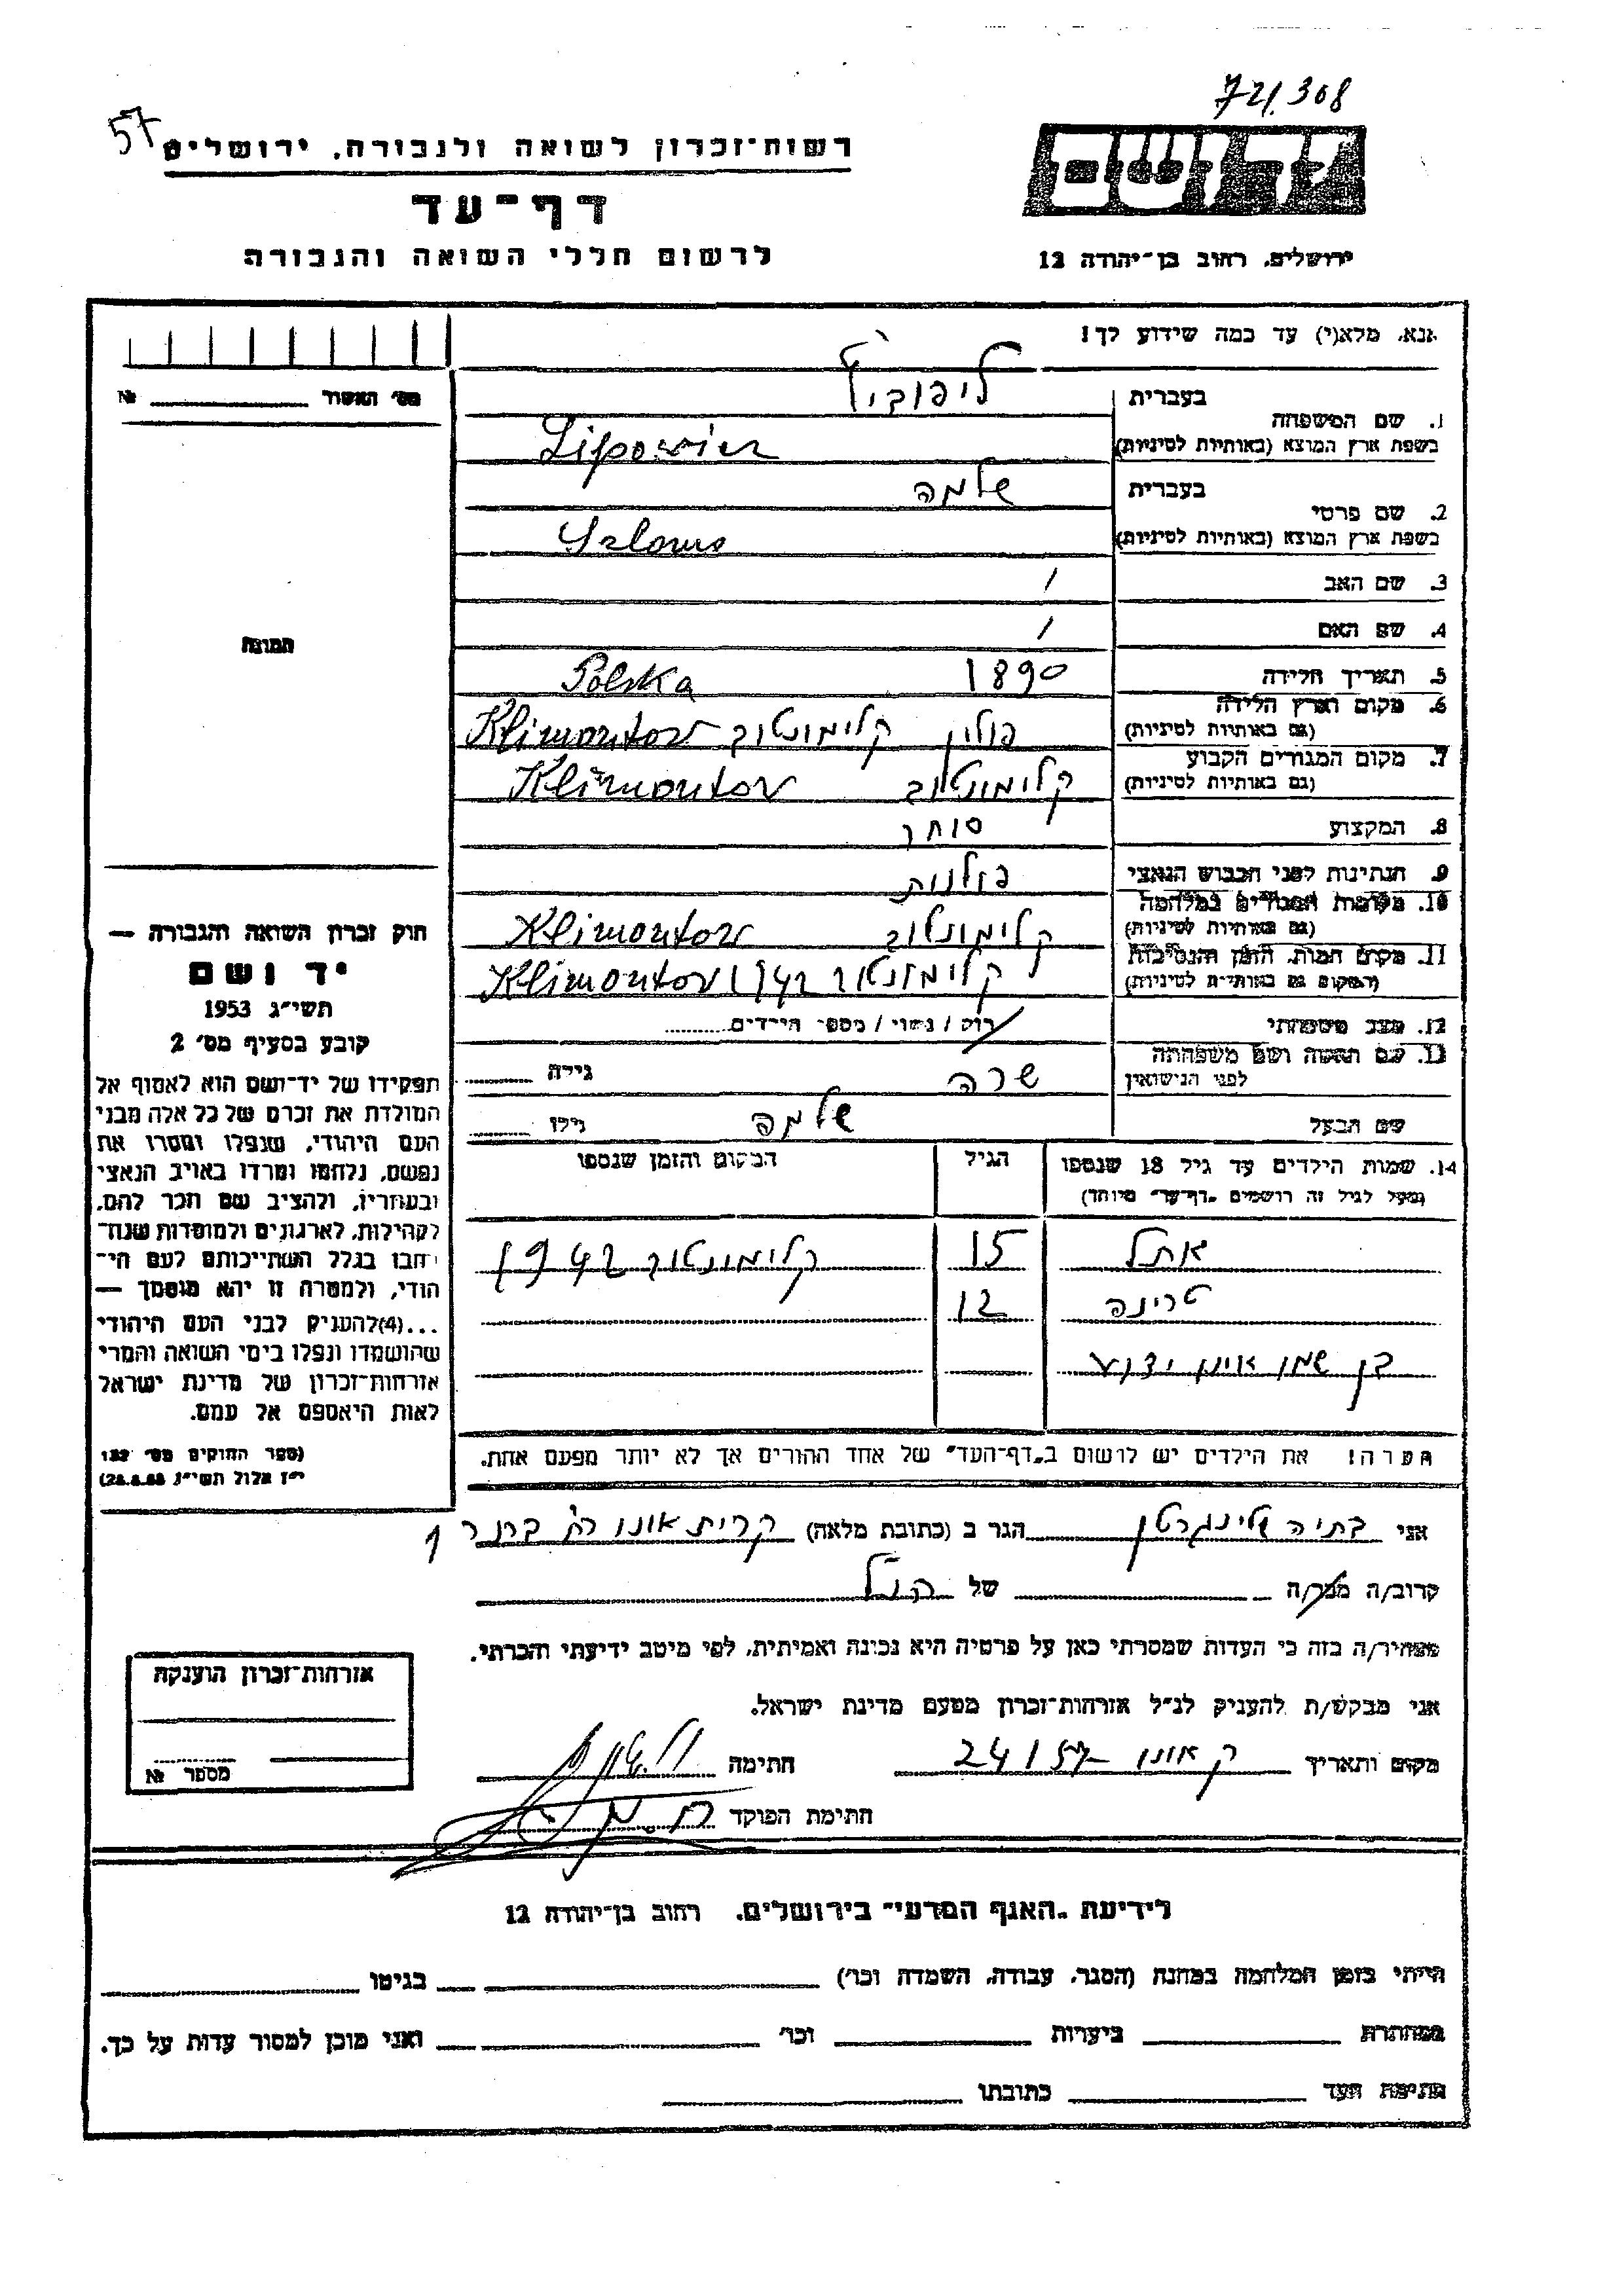 721.308
57
רשות-זכרון לשואה ולגבורה, ירושלים
דף-עד
לרשום חללי השואה והגבורה
ירושלים, רחוב בן-יהודה 12
אנא, מלא(י) עד כמה שידוע לך!
מס' האשור № 
1. שם המשפחה
בעברית ליפוביץ
בשפת ארץ המוצא (באותיות לטיניות) Lipowicz
2. שם פרטי
בעברית שלמה
בשפת ארץ המוצא (באותיות לטיניות) Szlomo
3. שם האב /
4. שם האם /
5. תאריך הלידה 1890 Polska
6. מקום וארץ הלידה
(גם באותיות לטיניות) פולין קלימונטוב Klimontow
7. מקום המגורים הקבוע
(גם באותיות לטיניות) קלימונטוב Klimontow
8. המקצוע סוחר
9. הנתינות לפני הכבוש הנאצי פולנית
10. מקומות המגורים במלחמה
(גם באותיות לטיניות) קלימונטוב Klimontow
11. מקום המות, הזמן והנסיבות
(המקום גם באותיות לטיניות) קלימונטוב 1942 Klimontow
12. מצב משפחתי רוק / נשוי / מספר הילדים
13. שם האשה ושם משפחתה
לפני הנישואין שרה גילה
שם הבעל שלמה גילו
14. שמות הילדים עד גיל 18 שנספו הגיל המקום והזמן שנספו
(מעל לגיל זה רושמים "דף-עד" מיוחד)
אתל 15 קלימונטוב 1942
טרינה 12
בן שמו אינו ידוע
הערה! את הילדים יש לרשום ב"דף-העד" של אחד ההורים אך לא יותר מפעם אחת.
התמונה
חוק זכרון השואה והגבורה —
יד ושם
תשי"ג 1953
קובע בסעיף מס' 2
תפקידו של יד-ושם הוא לאסוף אל
המולדת את זכרם של כל אלה מבני
העם היהודי, שנפלו ומסרו את
נפשם, נלחמו ומרדו באויב הנאצי
ובעוזריו, ולהציב שם וזכר להם,
לקהילות, לארגונים ולמוסדות שנח־
רבו בגלל השתייכותם לעם הי־
הודי, ולמטרה זו יהא מוסמך —
...(4)להעניק לבני העם היהודי
שהושמדו ונפלו בימי השואה והמרי
אזרחות-זכרון של מדינת ישראל
לאות היאספם אל עמם.
(ספר החוקים מס' 132
י"ז אלול תשי"ג 28.8.53)
אני בתיה שלינגרטן הגר ב (כתובת מלאה) קרית אונו רח' ברנר 1
קרוב/ה מכר/ה של הנ"ל
מצהיר/ה בזה כי העדות שמסרתי כאן על פרטיה היא נכונה ואמיתית, לפי מיטב ידיעתי והכרתי.
אני מבקש/ת להעניק לנ"ל אזרחות-זכרון מטעם מדינת ישראל.
מקום ותאריך ק אונו 24/5/57 חתימה
חתימת הפוקד
אזרחות-זכרון הוענקה
מספר №
לידיעת "האגף המדעי" בירושלים, רחוב בן-יהודה 12
הייתי בזמן המלחמה במחנה (הסגר, עבודה, השמדה וכו') בגיטו
במחתרת ביערות וכו' ואני מוכן למסור עדות על כך.
חתימת העד כתובתו